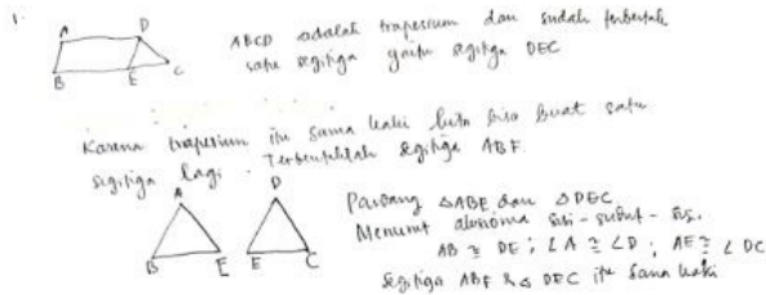 1.
A D
B E C
ABCD adalah trapesium dan sudah terbentuk
satu segitiga yaitu segitiga DEC
Karena trapesium itu sama kaki kita bisa buat satu
segitiga lagi. Terbentuklah segitiga ABF.
A D
B E E C
Pasang △ABE dan △DEC
Menurut aksioma sisi-sudut-sis.
AB ≅ DE ; ∠A ≅ ∠D ; AE ≅ ∠DC
Segitiga ABF & △ DEC itu sama kaki